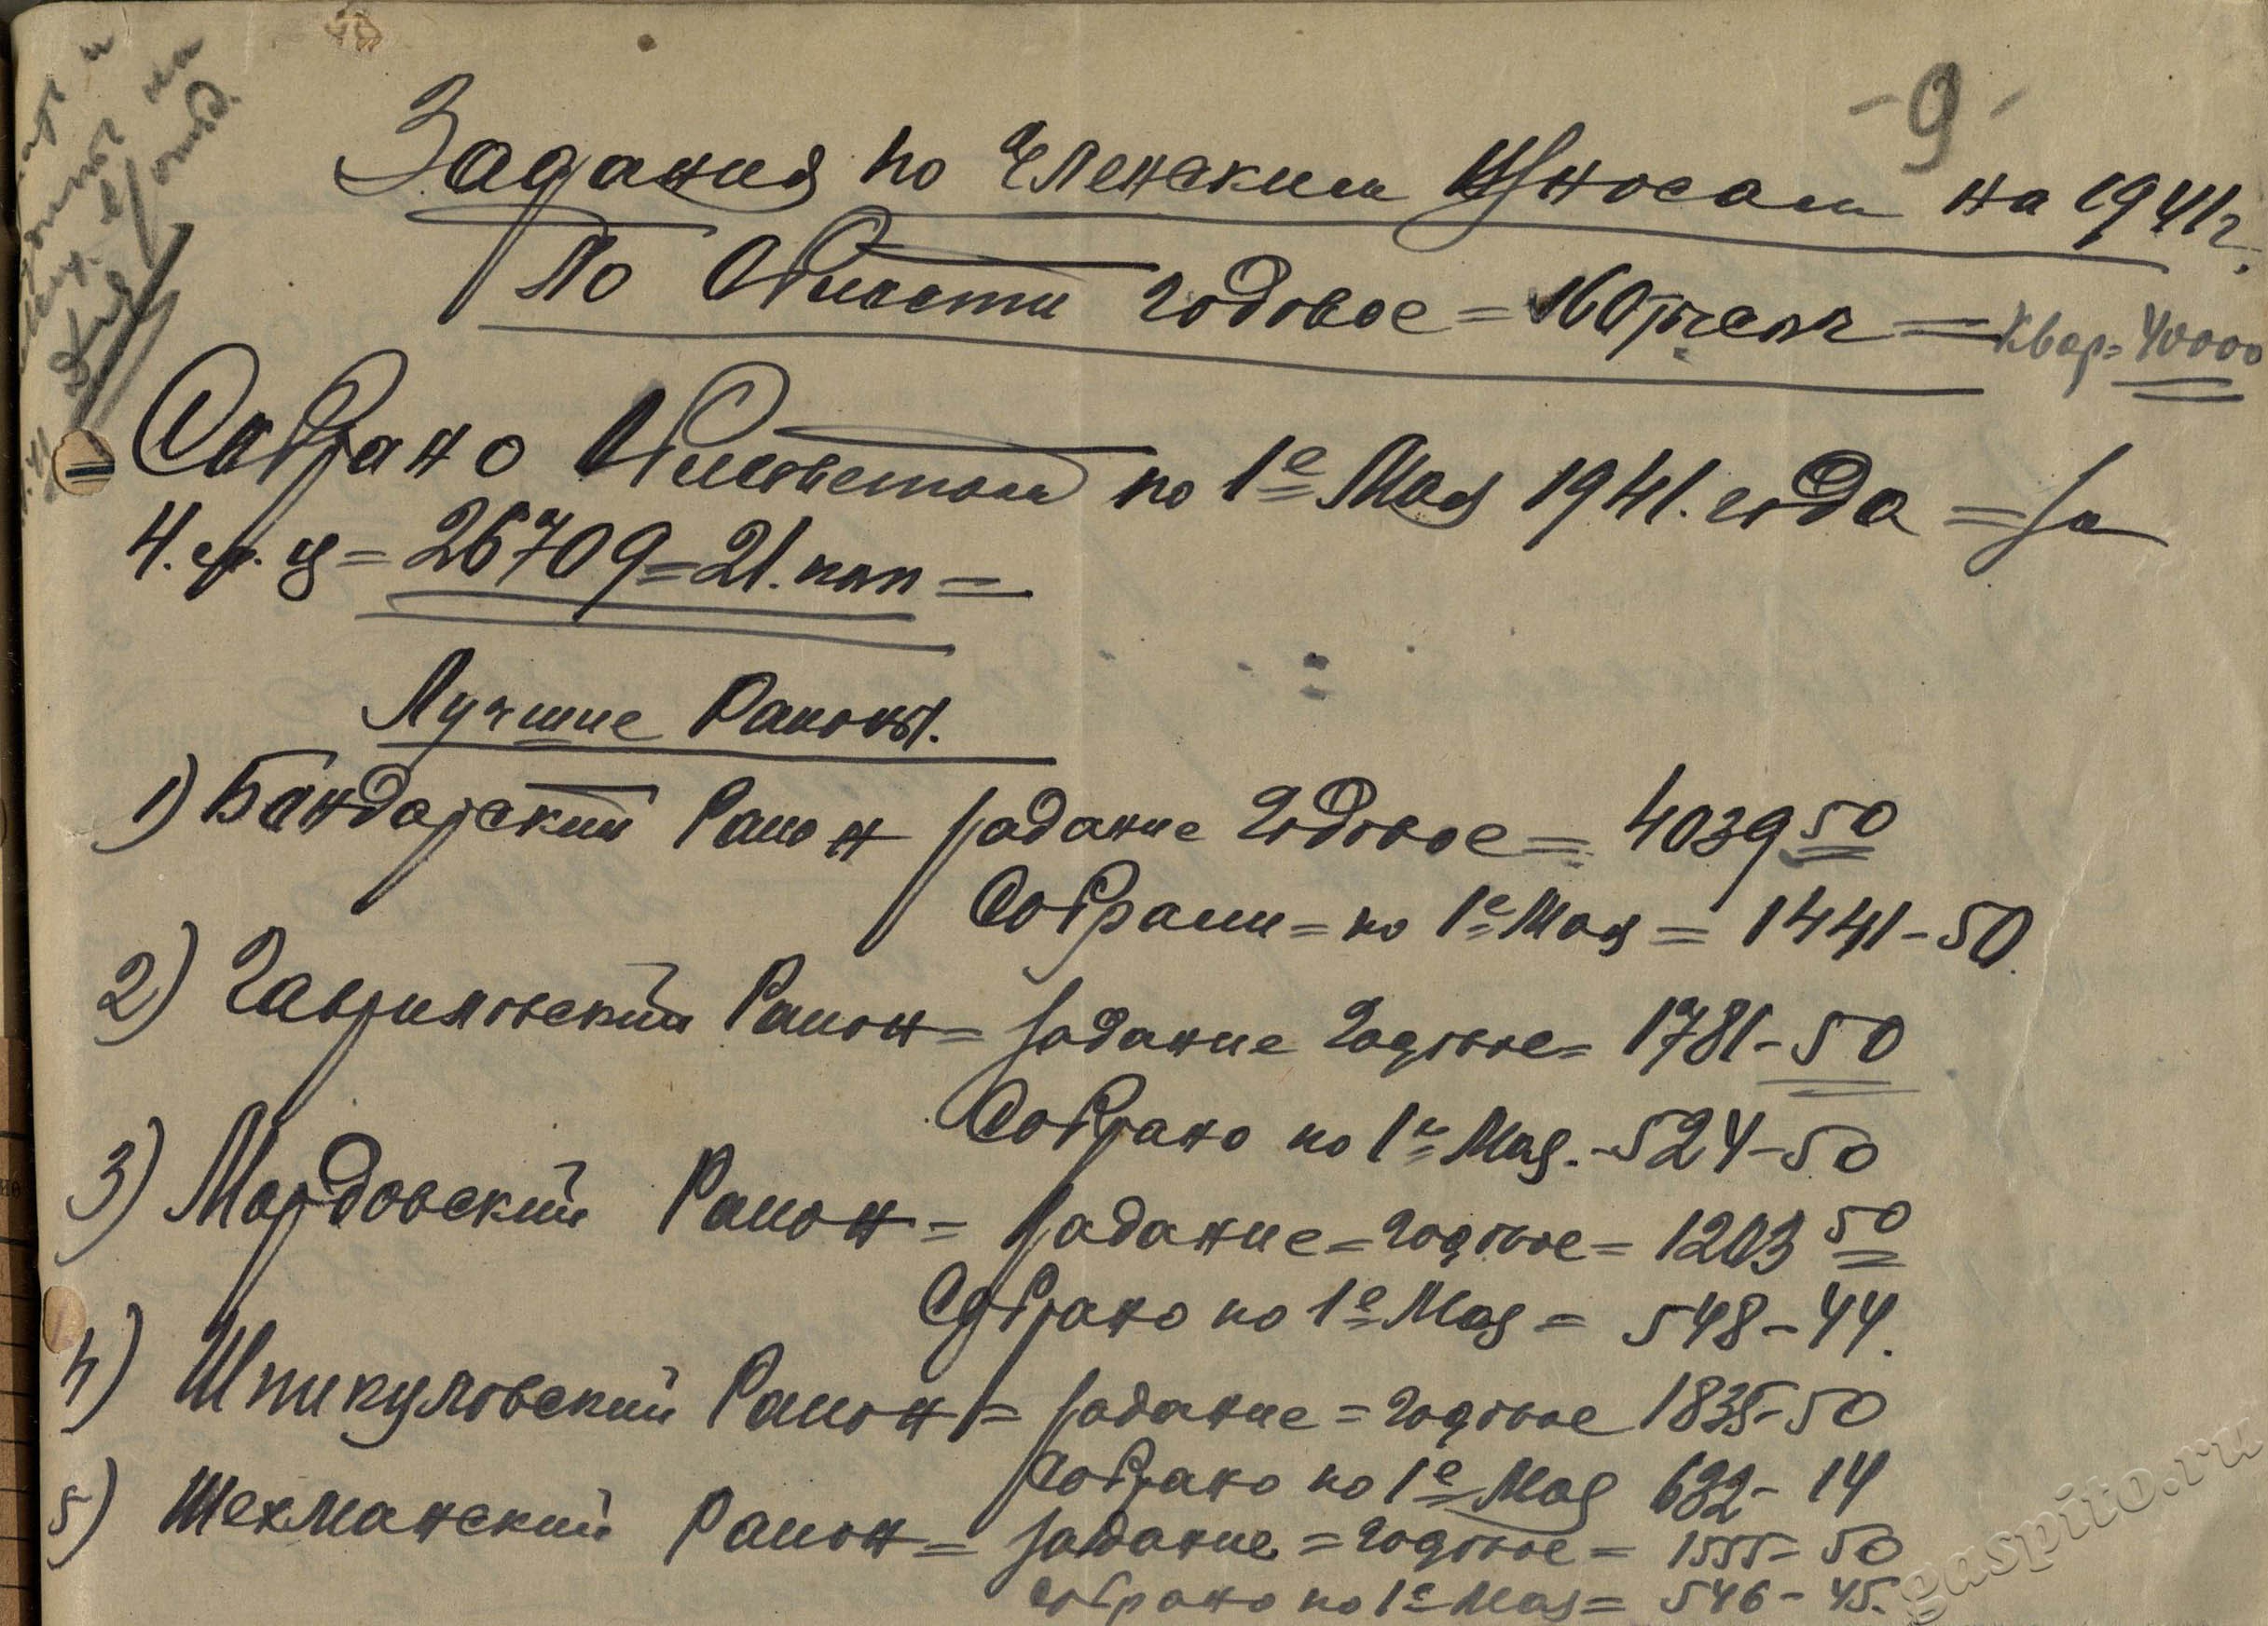 -9-
Задания по членским взносам на 1941г.
По Области годовое = 160 тысяч = Квар = 40000
Собрано Облсоветом по 1е Мая 1941. года = за
4. = 26709 = 21. коп =
Лучшие Раионы.
1) Бандарский Раион задание Годовое = 4039 50
Собрали = по 1е Мая = 1441-50.
2) Гавриловский Раион = задание годовое = 1781-50
Собрано по 1е Мая. - 524-50
3) Мордовский Раион = задание = годовое = 1203 50
Собрано по 1е Мая = 548-44.
4) Шпикуловский Раион = задание = годовое 1835-50
Собрано по 1е Мая 632-14
5) Шехманский Раион = задание = годовое = 1555=50
Собрано по 1е Мая = 546-45.
gaspito.ru